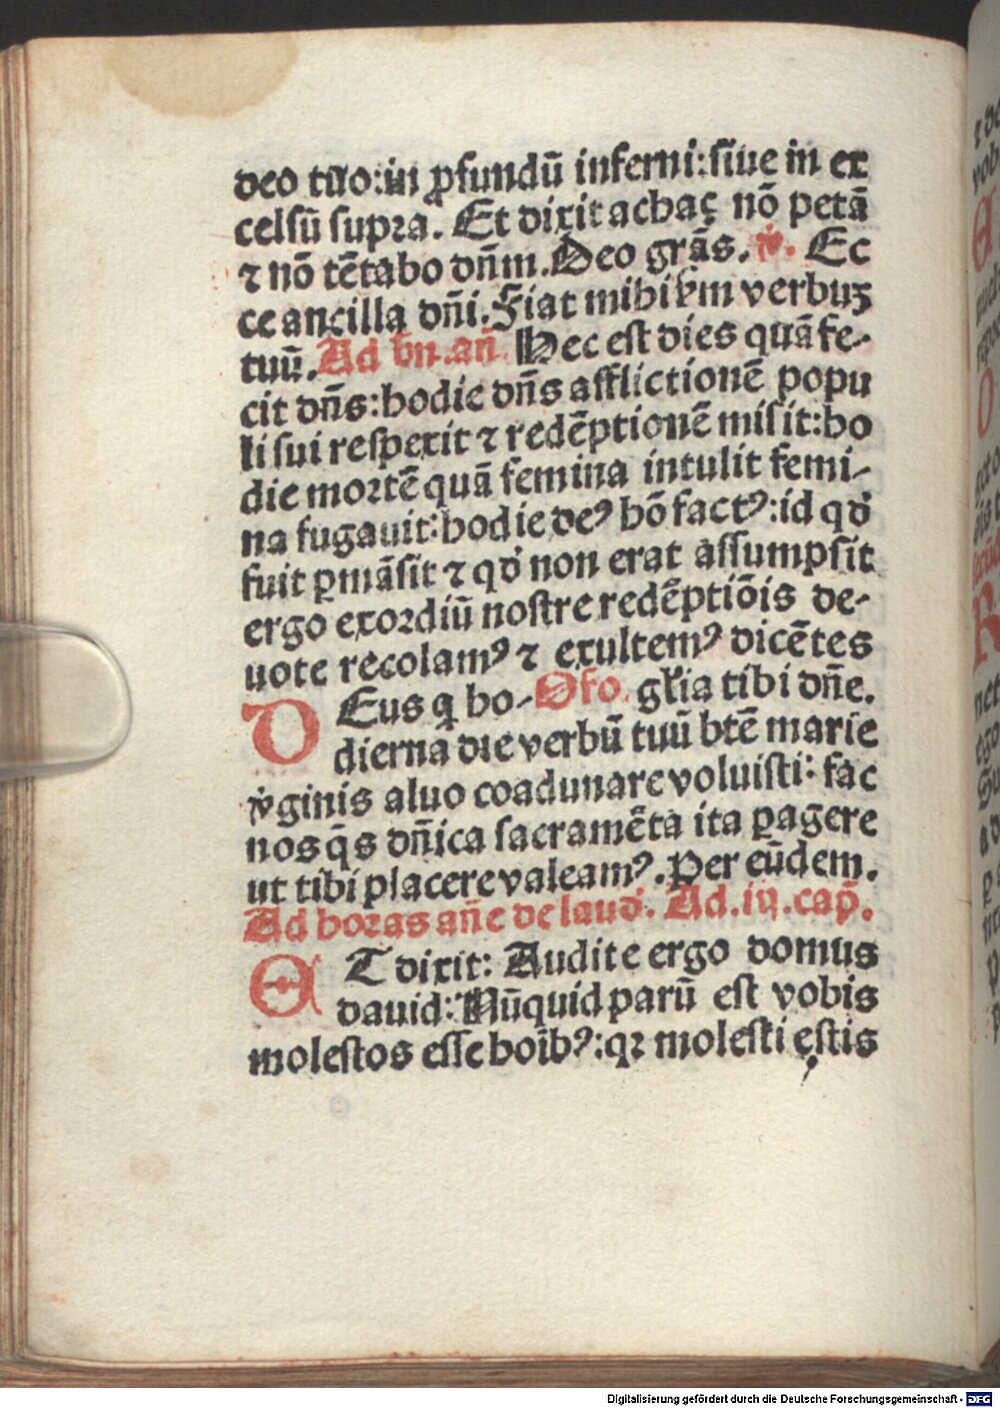 deo tuo:in ꝓfundū inferni:ſiue in ex
celſū ſupꝛa. Et dixit achaꝫ nō petā
⁊ nō tētabo dn̄m. Deo gr̄as. ℣. Ec
ce ancilla dn̄i. Fiat mihi ẜm verbuꝫ
tuū. Ad bn̄.an̄. Hec eſt dies quā fe-
cit dn̄s:hodie dn̄s afflictionē popu
li ſui reſpexit ⁊ redēptionē miſit:ho
die moꝛtē quā femina intulit femi-
na fugauit:hodie deꝰ hō factꝰ:id qđ
fuit ꝑmāſit ⁊ qđ non erat aſſumpſit
ergo exoꝛdiū noſtre redēptiōis de-
uote recolamꝰ ⁊ exultemꝰ dicētes
DEus q̇ ho- Oſo. gl̓ia tibi dn̄e.
dierna die verbū tuū btē marie
v̇ginis aluo coadunare voluiſti: fac
nos q̄s dn̄ica ſacramēta ita ꝑagere
ut tibi placere valeamꝰ. Per eūdem.
Ad hoꝛas an̄e de laud̓. Ad.iij.cap̄.
ET dixit: Audite ergo domus
dauid: Nūquid parū eſt vobis
moleſtos eſſe hoīb̓ꝰ:qꝛ moleſti eſtis
Digitalisierung gefördert durch die Deutsche Forschungsgemeinschaft - DFG